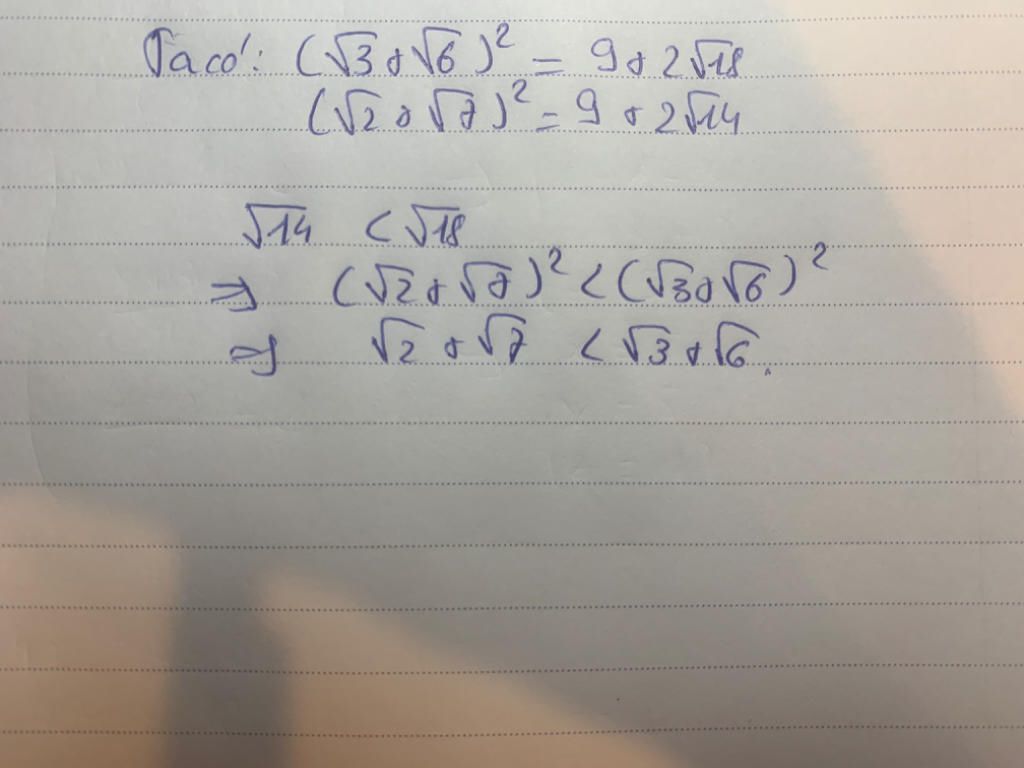 Ta có: (√3 + √6)² = 9 + 2√18
(√2 + √7)² = 9 + 2√14
√14 < √18
⇒ (√2 + √7)² < (√3 + √6)²
⇒ √2 + √7 < √3 + √6.